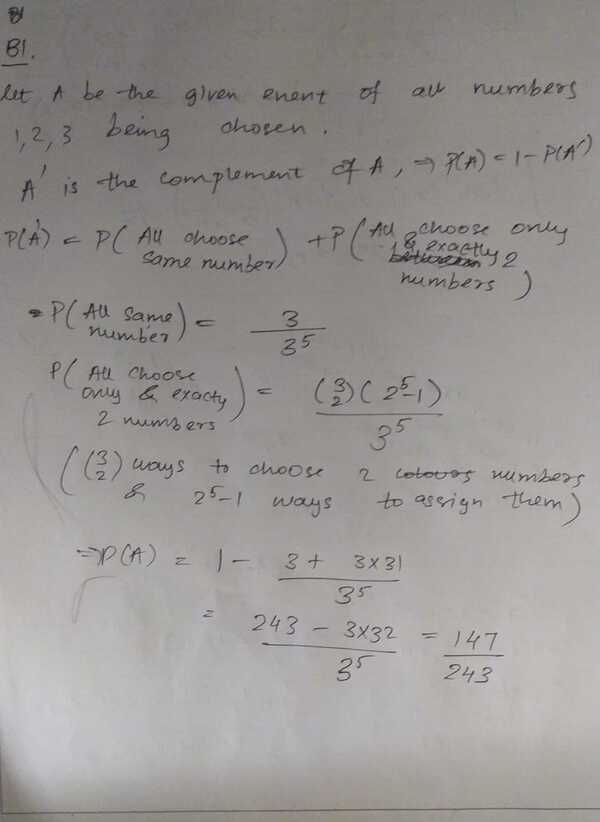 B1
B1.
Let A be the given event of all numbers
1, 2, 3 being chosen.
A' is the complement of A, ⇒ P(A) = 1 - P(A')
P(A') = P( All choose same number ) + P( All choose only & exactly 2 numbers )
= P( All same number ) = 3 / 3^5
P( All choose only & exacty 2 numbers ) = (3 2)( 2^5-1 ) / 3^5
( (3 2) ways to choose 2 colours numbers
& 2^5-1 ways to assign them )
⇒ P(A) = 1 - 3 + 3×31 / 3^5
= 243 - 3×32 / 3^5 = 147 / 243